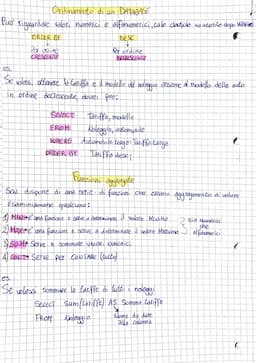 Ordinamento di un DATABASE
Può riguardare valori numerici e alfanumerici, sale
ORDER BY DESC
Per ordine Per ordine
CRESCENTE DECRESCENTE
es.
Se volessi ottenere la tariffa e il modello del noleggio ovvero al modello delle auto
in ordine decrescente, dovrei fare:
SELECT Tariffa, modello
FROM Noleggio, automobile
WHERE Automobile.targa = Tariffa.targa
ORDER BY Tariffa desc;
Funzioni aggregate
SQL dispone di una serie di funzioni che creano aggregamento di valore
Esaminiamone qualcuna:
1) è una funzione e serve a determinare il valore Massimo
2) è una funzione e serve a determinare il valore Minimo
Sia numerici
che
alfanumerici
3) SUM = Serve a sommare valori numerici
4) COUNT = SERVE PER CONTARE (tutto)
es.
Se volessi sommare le tariffe di tutti i noleggi
SELECT Sum(tariffe) AS Somma tariffe
FROM Noleggio
Nome da dare
alla colonna